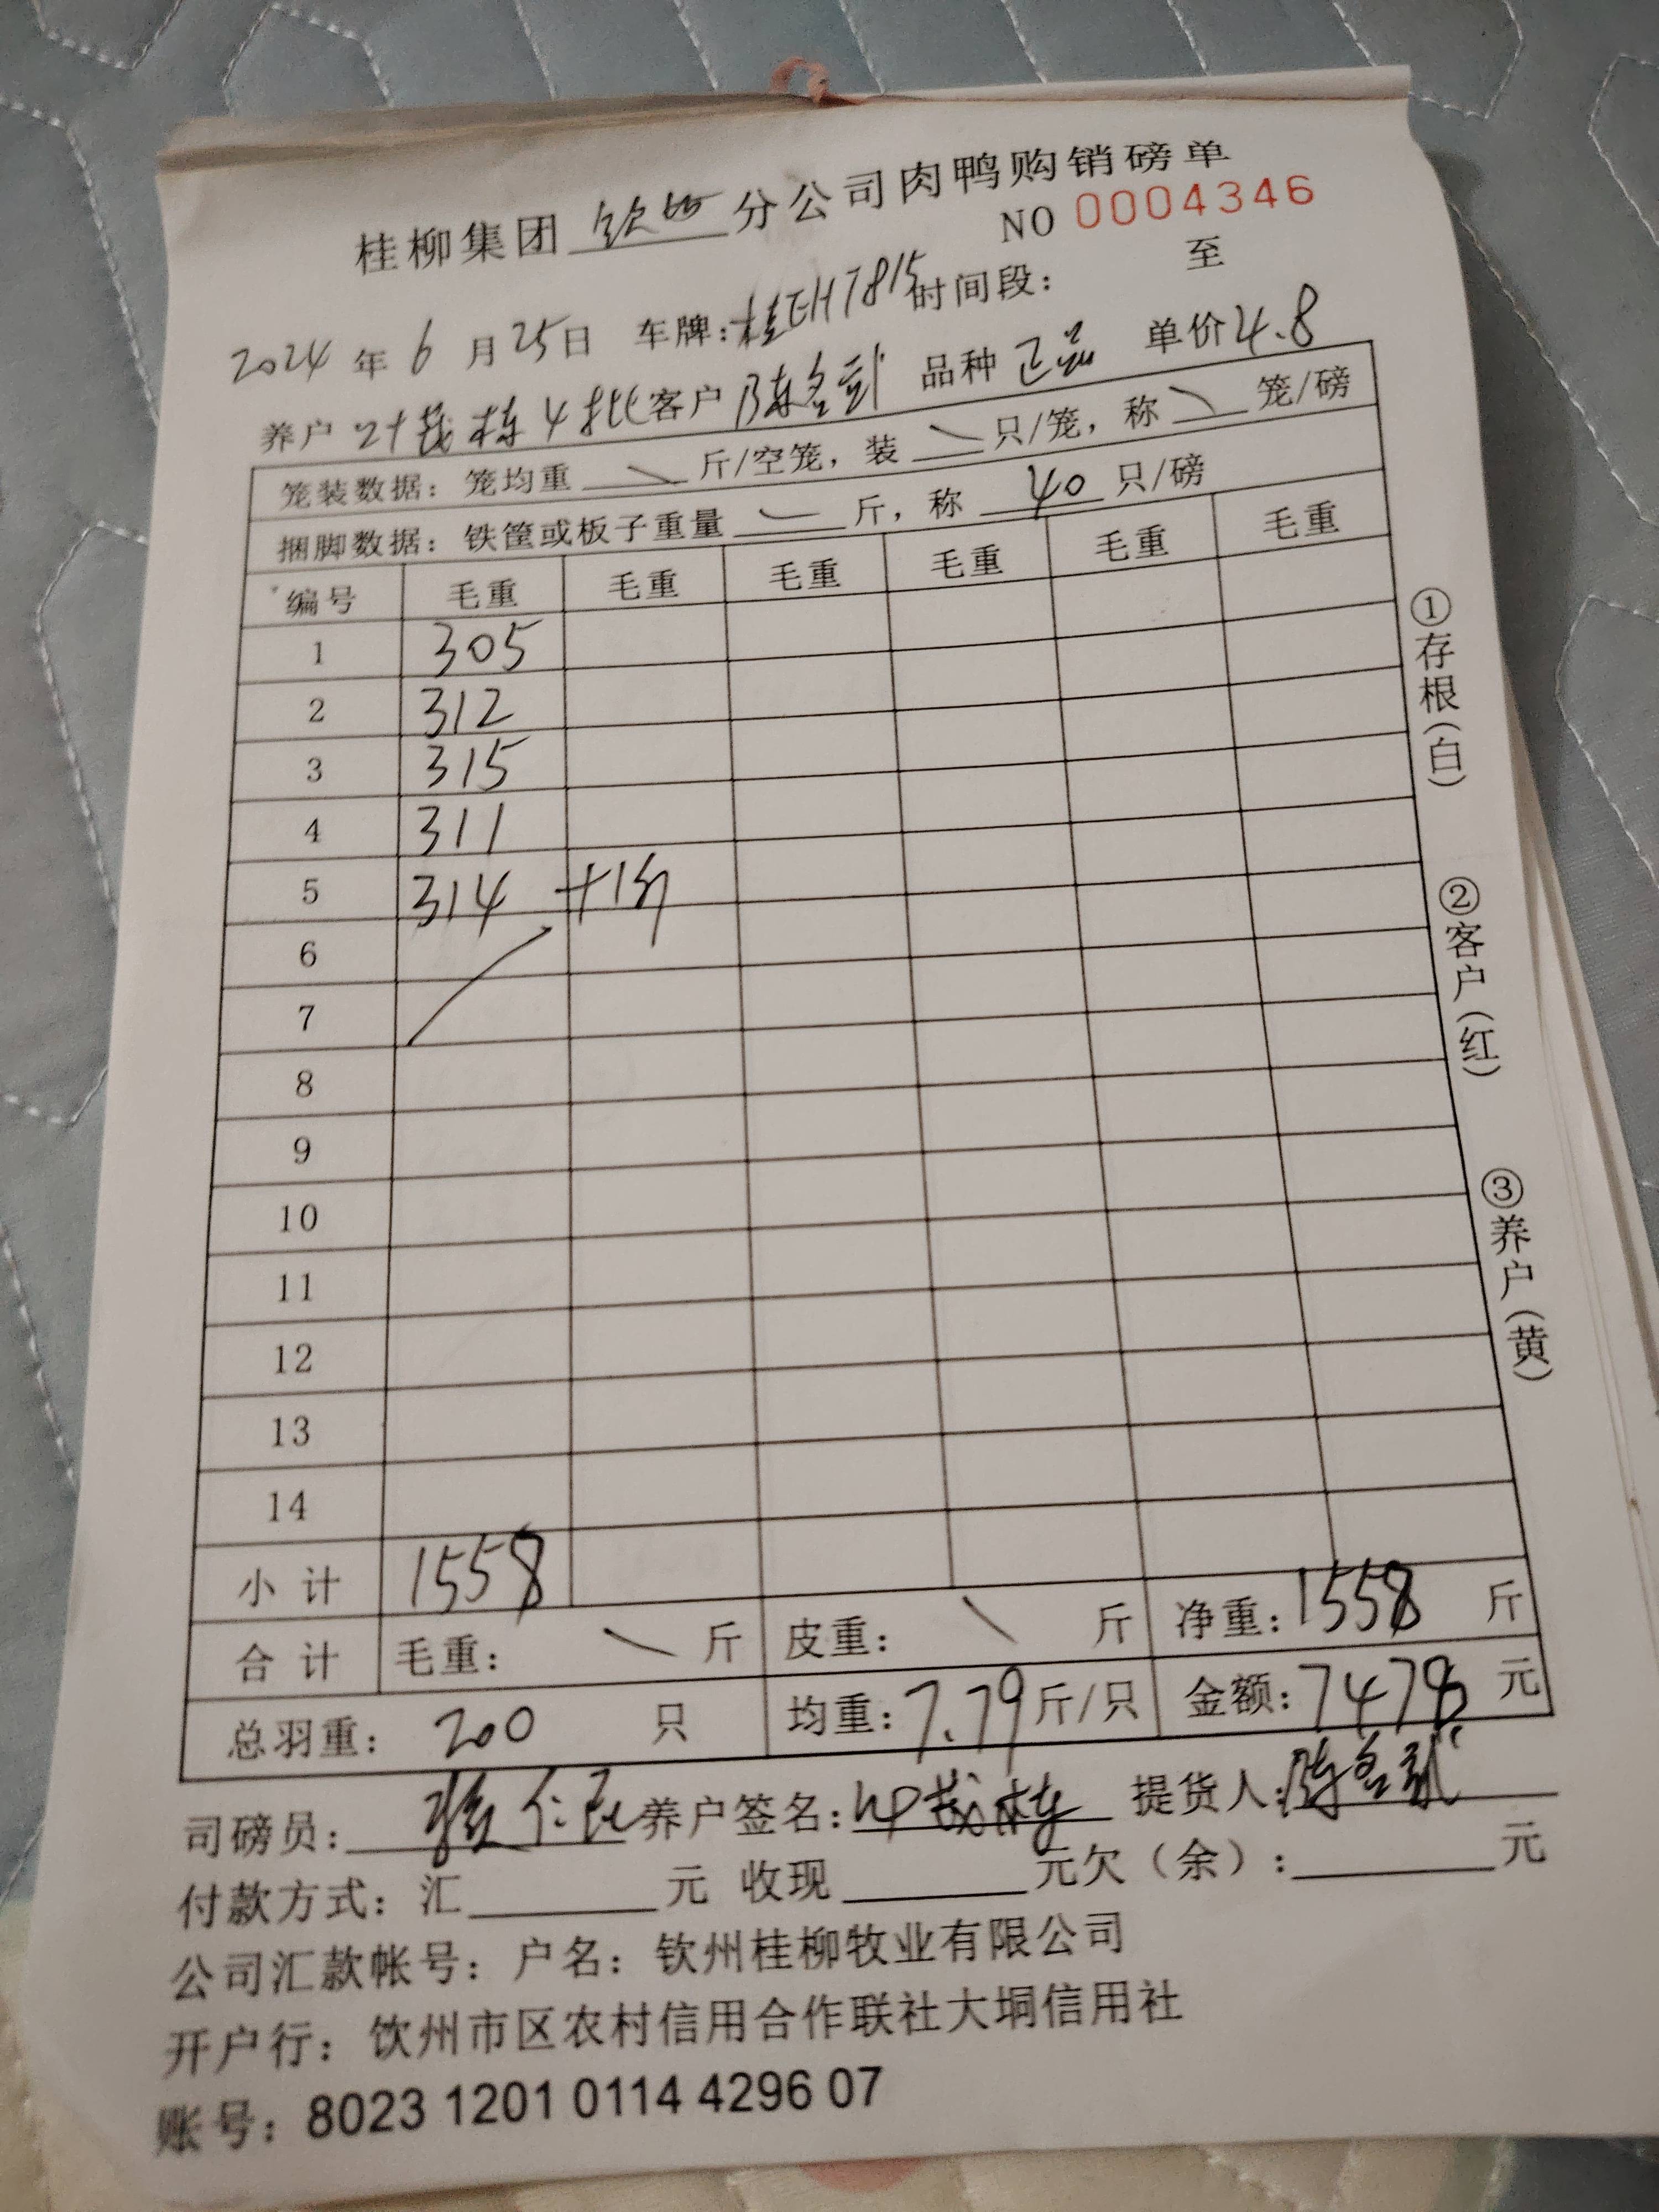 桂柳集团 钦州 分公司肉鸭购销磅单
NO 0004346
2024 年 6 月 25 日 车牌:桂EH7815 时间段: 至
养户 叶茂栋 4批 客户 陈名武 品种 正品 单价 4.8
笼装数据:笼均重 \ 斤/空笼,装 \ 只/笼,称 \ 笼/磅
捆脚数据:铁筐或板子重量 \ 斤,称 40 只/磅
编号 毛重 毛重 毛重 毛重 毛重 毛重
1 305
2 312
3 315
4 311
5 314 +1斤
6
7
8
9
10
11
12
13
14
小计 1558
合计 毛重: \ 斤 皮重: \ 斤 净重:1558 斤
总羽重: 200 只 均重:7.79 斤/只 金额:7478 元
司磅员: 养户签名:叶茂栋 提货人:陈名武
付款方式:汇 元 收现 元欠(余): 元
公司汇款帐号:户名:钦州桂柳牧业有限公司
开户行:饮州市区农村信用合作联社大垌信用社
账号:8023 1201 0114 4296 07
①存根(白)
②客户(红)
③养户(黄)